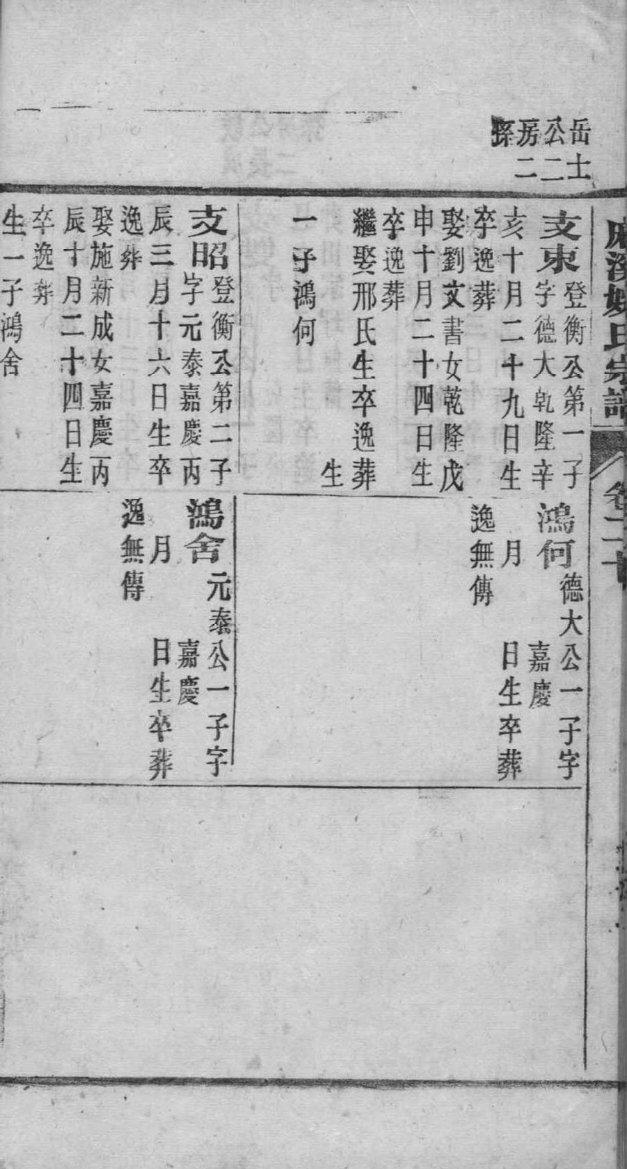 麻溪姚氏宗譜
卷二十
岳士
公二
房二
孫
支東
登衡公第一子
字德大乾隆辛
亥十月二十九日生
卒逸葬
娶劉文書女乾隆戊
申十月二十四日生
卒逸葬
繼娶邢氏生卒逸葬
生
一子鴻何
支昭
登衡公第二子
字元泰嘉慶丙
辰三月十六日生卒
逸葬
娶施新成女嘉慶丙
辰十月二十四日生
卒逸葬
生一子鴻舍
鴻何
德大公一子字
嘉慶
月 日生卒葬
逸無傳
鴻舍
元泰公一子字
嘉慶
月 日生卒葬
逸無傳